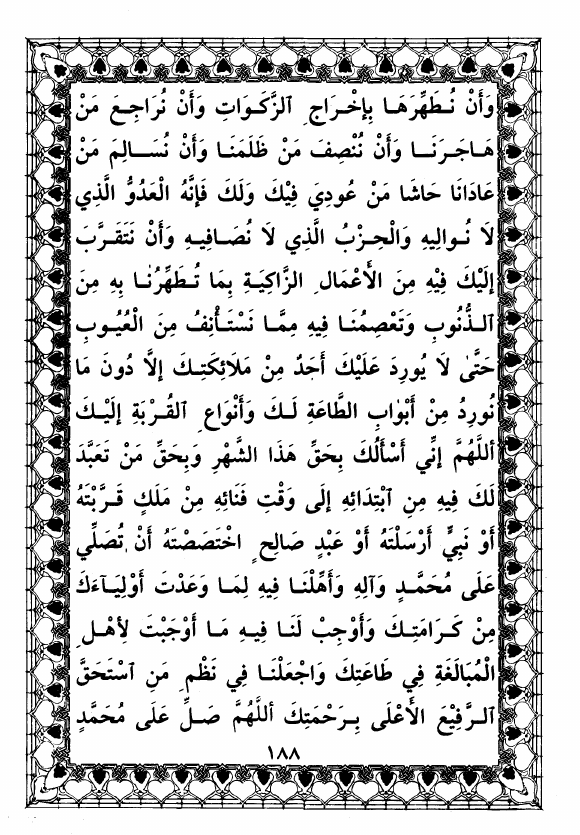 وَأَنْ نُـطَهِّرَهَـا بِإِخْـرَاجِ ٱلزَّكَـوَاتِ وَأَنْ نُرَاجِـعَ مَنْ
هَـاجَـرَنَـا وَأَنْ نُنْصِفَ مَنْ ظَلَمَنَـا وَأَنْ نُسَـالِمَ مَنْ
عَادَانَا حَاشَا مَنْ عُودِيَ فِيْكَ وَلَكَ فَإِنَّهُ الْعَدُوُّ الَّذِي
لَا نُـوالِيهِ وَالْحِـزْبُ الَّذِي لَا نُصَـافِيـهِ وَأَنْ نَتَقَـرَّبَ
إِلَيْكَ فِيْهِ مِنَ الْأَعْمَالِ ٱلزَّاكِيَـةِ بِمَا تُـطَهِّرُنَـا بِهِ مِنَ
ٱلـذُّنُوبِ وَتَعْصِمُنَـا فِيهِ مِمَّـا نَسْتَـأْنِفُ مِنَ الْعُيُـوبِ
حَتَّىٰ لَا يُورِدَ عَلَيْكَ أَحَدٌ مِنْ مَلَائِكَتِـكَ إِلَّا دُونَ مَا
نُورِدُ مِنْ أَبْوَابِ الطَّاعَةِ لَـكَ وَأَنْوَاعِ القُـرْبَةِ إِلَيْـكَ
أَللَّهُمَّ إِنِّي أَسْأَلُكَ بِحَقِّ هَذَا الشَّهْرِ وَبِحَقِّ مَنْ تَعَبَّدَ
لَكَ فِيهِ مِنِ ٱبْتِدَائِهِ إِلَى وَقْتِ فَنَائِهِ مِنْ مَلَكٍ قَـرَّبْتَهُ
أَوْ نَبِيٍّ أَرْسَلْتَهُ أَوْ عَبْدٍ صَالِحٍ اخْتَصَصْتَهُ أَنْ تُصَلِّي
عَلَى مُحَمَّـدٍ وَآلِهِ وَأَهِّلْنَـا فِيهِ لِمَـا وَعَدْتَ أَوْلِيَـآءَكَ
مِنْ كَـرَامَتِـكَ وَأَوْجِبْ لَنَـا فِيـهِ مَـا أَوْجَبْتَ لِأَهْـلِ
الْمُبَالَغَةِ فِي طَاعَتِكَ وَاجْعَلْنَـا فِي نَظْمِ مَنِ ٱسْتَحَقَّ
ٱلـرَّفِيْعَ الأَعْلَى بِـرَحْمَتِكَ أللَّهُمَّ صَـلِّ عَلَى مُحَمَّدٍ
١٨٨